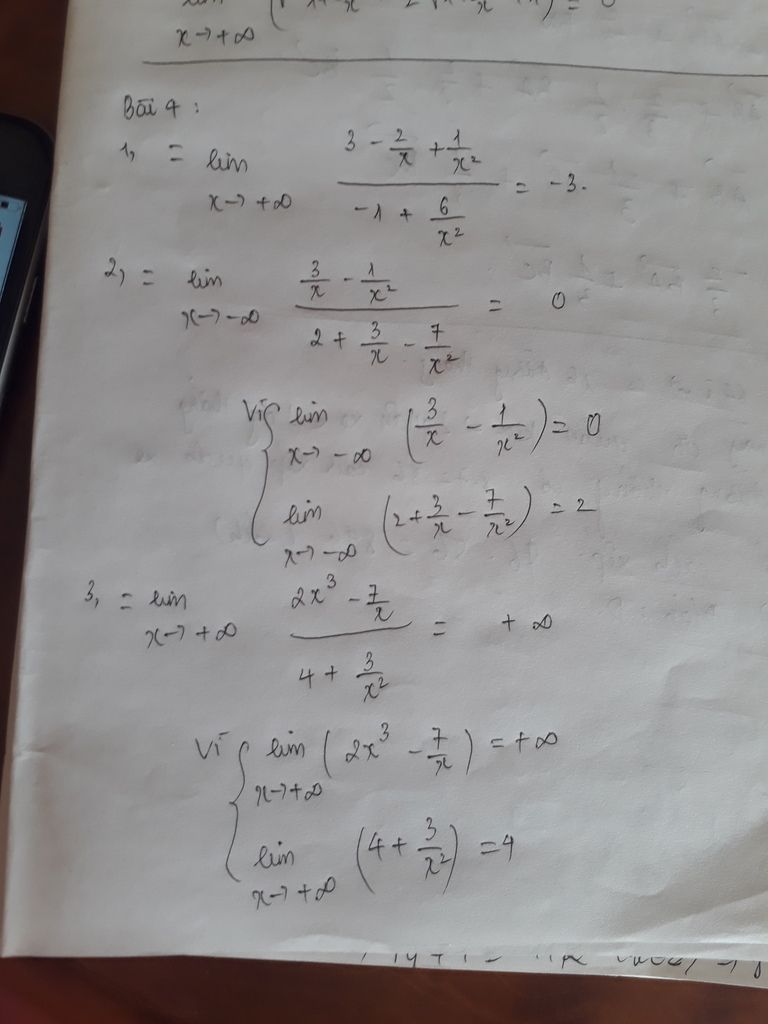 x→+∞
Bài 4 :
1, = lim x→+∞ (3 - 2/x + 1/x²)/(-1 + 6/x²) = -3.
2, = lim x→-∞ (3/x - 1/x²)/(2 + 3/x - 7/x²) = 0
Vì { lim x→-∞ (3/x - 1/x²) = 0
lim x→-∞ (2 + 3/x - 7/x²) = 2
3, = lim x→+∞ (2x³ - 7/x)/(4 + 3/x²) = +∞
Vì { lim x→+∞ (2x³ - 7/x) = +∞
lim x→+∞ (4 + 3/x²) = 4